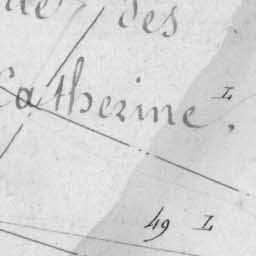 des
Catherine.
L
49 L